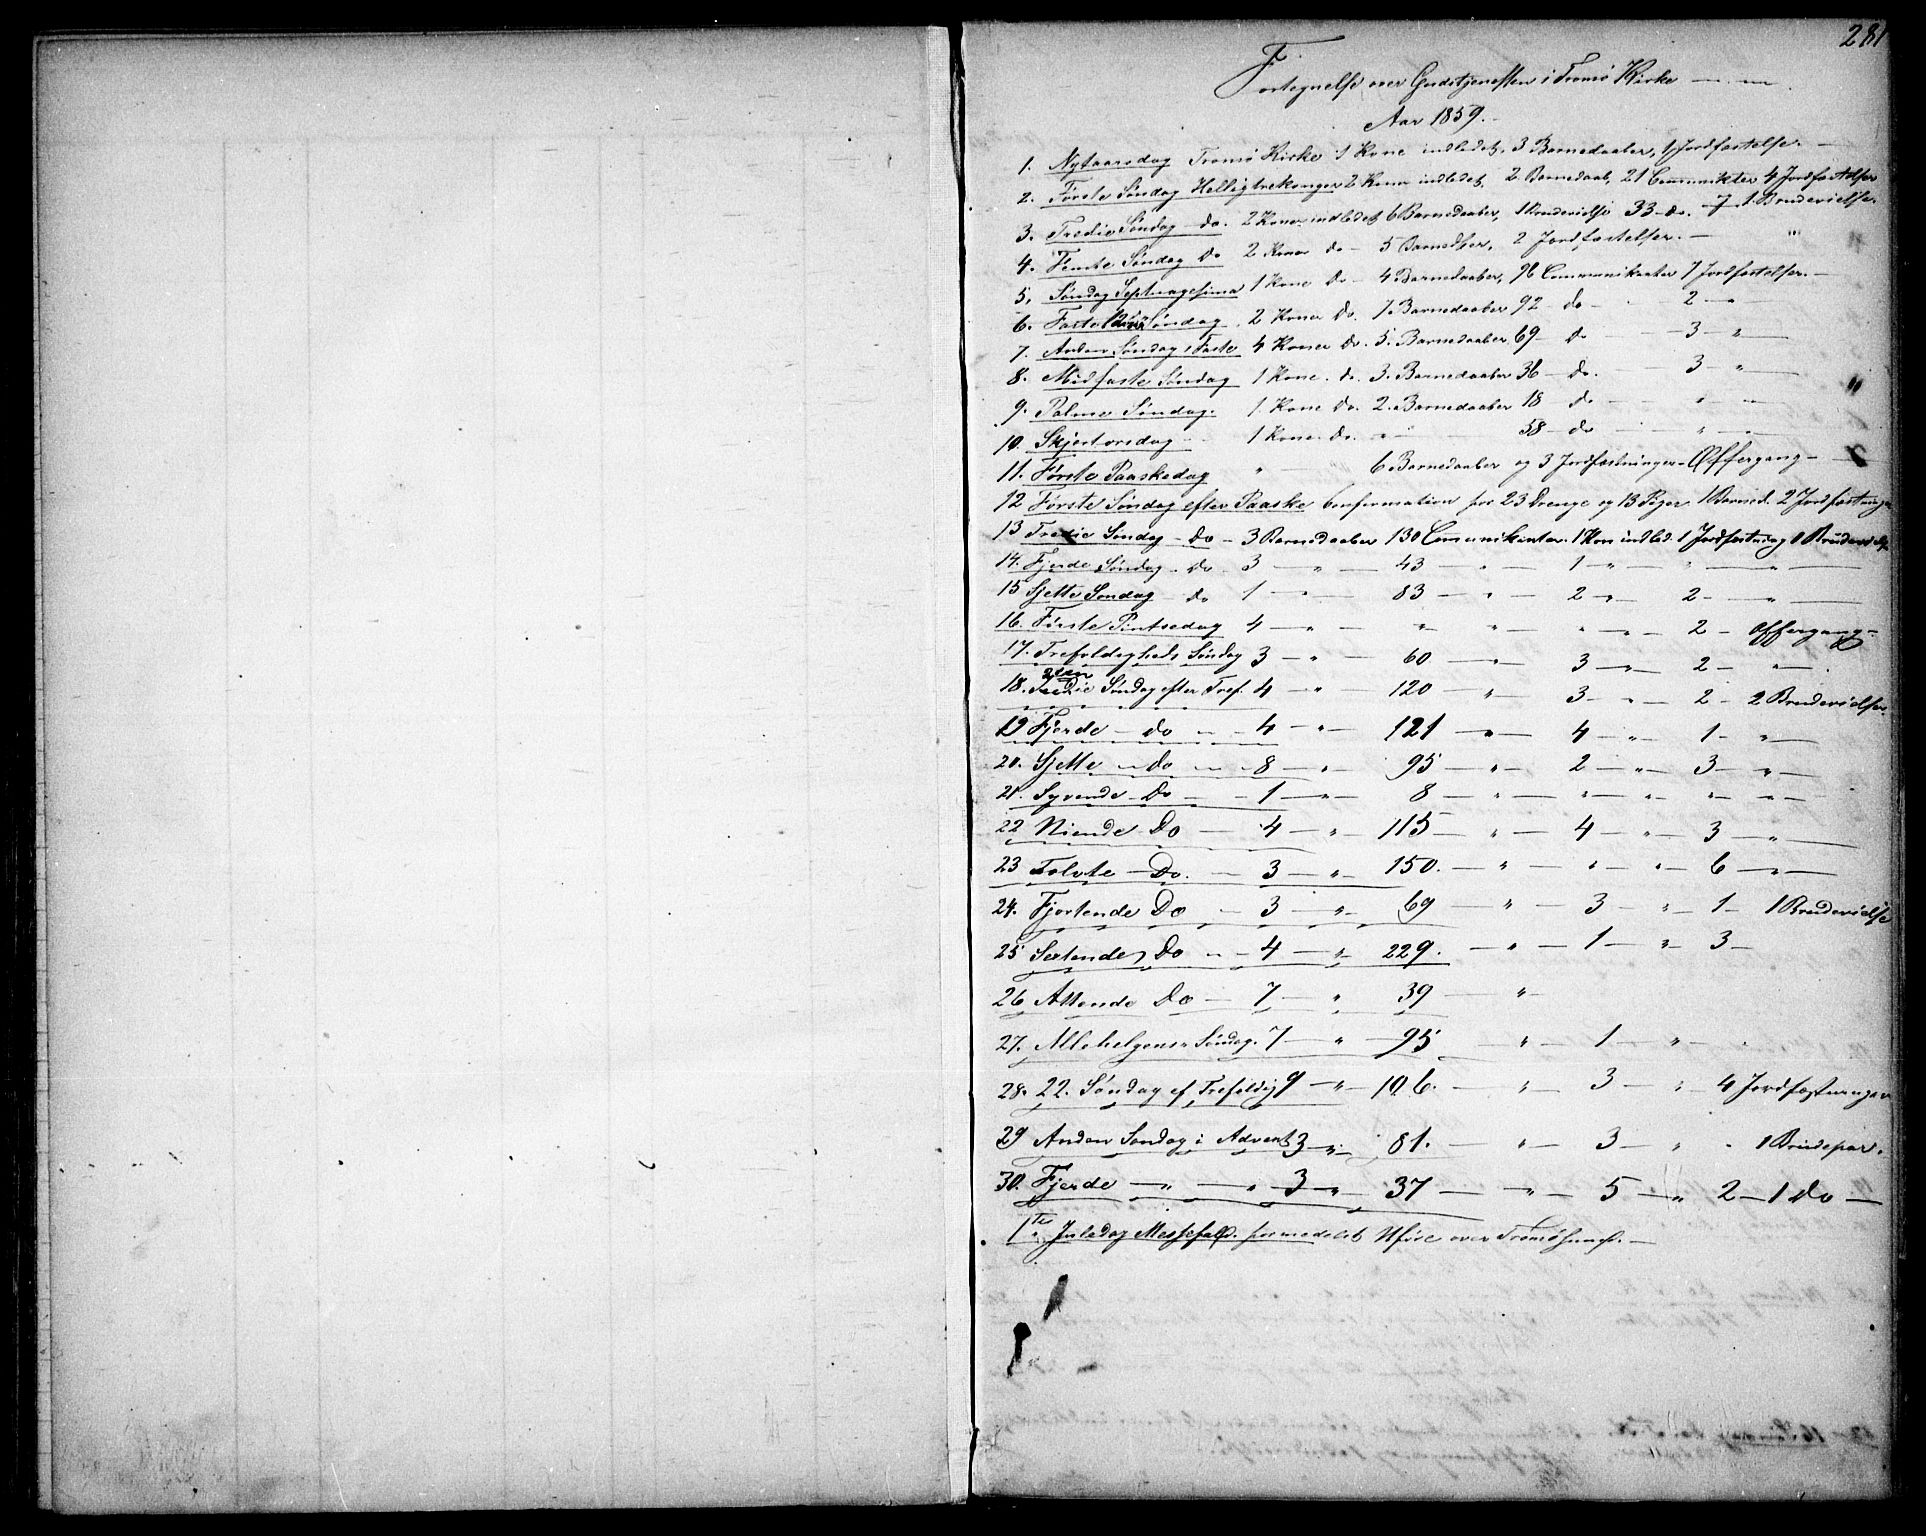 281
Fortegnelse over Gudstjenesten i Tromsø Kirke
Aar 1859.
1. Nytaarsdag Tromsø Kirke 1 Kone indledet, 3 Barnedaaber, 1 Jordfæstelse. —
2. Første Søndag Helligtrekonger 2 Koner indledet, 2 Barnedaab, 21 Communikter 4 Jordfæstelser
3. Tredie Søndag do. 2 Koner indledet 6 Barnedaaber, 1 Brudevielse 33 do. 7 1 Brudevielse.
4. Femte Søndag Do 2 Koner do — 5 Barnedber, 2 Jordfæstelser. — "
5. Søndag Septuagesima 1 Kone Do — 4 Barnedaaber, 96 Communikanter 7 Jordfæstelser. —
6. Fastelavns Søndag. 2 Koner Do. 7 Barnedaaber 92 do — 2 — "
7. Anden Søndag i Faste 4 Koner Do. 5. Barnedaaber 69 — Do — 3 — "
8. Midfaste Søndag 1 Kone. do. 3. Barnedaaber 36 — do. 3 — "
9. Palme Søndag. 1 Kone Do. 2. Barnedaaber 18 do — " — "
10. Skjertorsdag — 1 Kone. do. " — 58 — do — " —
11. Første Paaskedag " — " 6 Barnedaaber og 3 Jordfæstninger — Offergang —
12 Første Søndag efter Paaske Confirmation for 23 Drenge og 13 Piger 1 Barned. 2 Jordfæstning
13 Tredie Søndag — Do — 3 Barnedaaber 130 Communikanter. 1 Kone indled. 1 Jordfæstning 1 Brudevielse
14. Fjerde Søndag. Do. 3 — " — 43 — " — 1 — " — " — " —
15 Sjette Søndag — do 1 — " — 83 — " — 2 — " — 2 — " —
16. Første Pintsedag 4 — " — " — " — " — " — 2 — Offergang —
17. Trefoldigheds Søndag 3 — " — 60 — " — 3 — " — 2 — " —
2den
18. Tredie Søndag efter Tref. 4 — " — 120 — " — 3 — " — 2 — 2 Brudevielser.
19 Fjerde — do — 4 — " — 121 — " — 4 — " — 1 — " —
20. Sjette — do — 8 — " — 95 — " — 2 — " — 3 — " —
21. Syvende — Do — 1 — " — 8 — " — " — " — " — " —
22 Niende Do — 4 — " — 115 — " — 4 — " — 3 — " —
23 Tolvte — Do. — 3 — " — 150. — " — " — " 6 — " —
24. Fjortende Do — 3 — " — 69 — " — 3 — " 1 — 1 Brudevielse
25 Sextende, Do — 4 — " — 229. — " — 1 — " 3 —
26 Attende Do — 7 — " 39 — "
27. Allehelgens Søndag. 7 — " — 95 " — 1 — " — .
28. 22. Søndag ef. Trefoldig 9 — " — 106. — " — 3 — " 4 Jordfæstninger
29 Anden Søndag i Advent 3 — " 81. — " — 3 — " " 1 Brudepar.
30. Fjerde — " — " 3 — " — 37 — " — 5 — " 2 — 1 Do —
1te Juledag Messefald formedelst Uføre over Tromsøsund. —